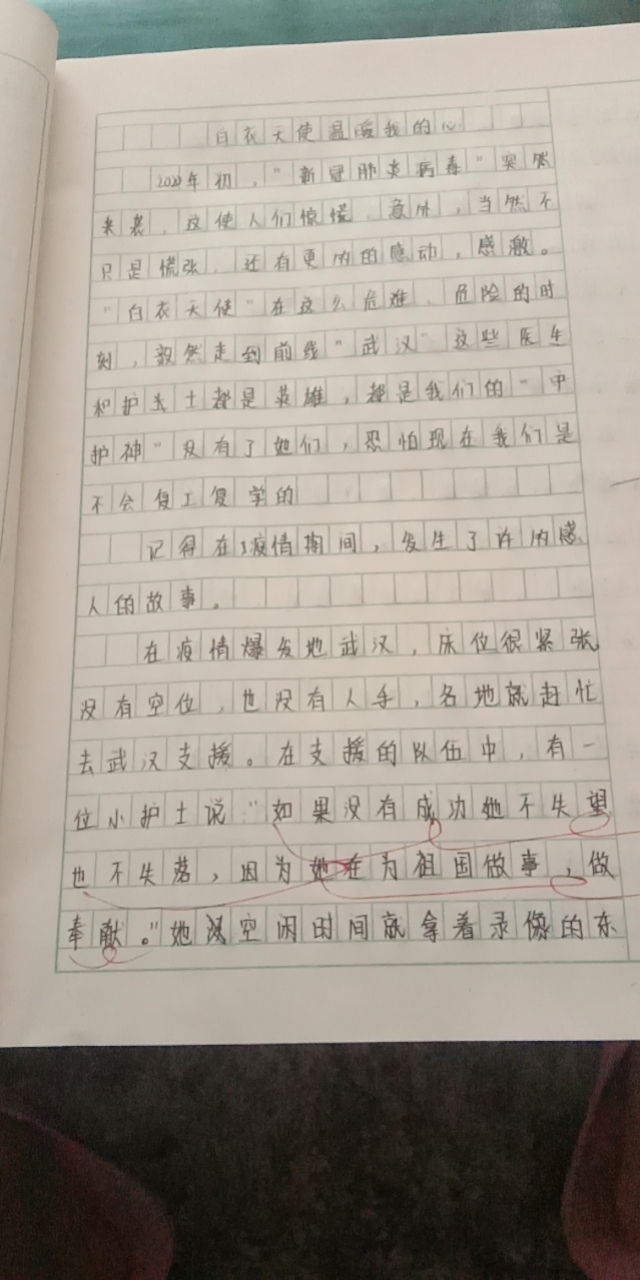 白衣天使温暖我的心
2020年初，"新冠肺炎病毒"突然
来袭，这使人们惊慌、意外，当然不
只是慌张，还有更多的感动，感激。
"白衣天使"在这么危难、危险的时
刻，毅然走到前线"武汉"这些医生
和护士都是英雄，都是我们的"守
护神"没有了她们，恐怕现在我们是
不会复工复学的
记得在疫情期间，发生了许多感
人的故事。
在疫情爆发地武汉，床位很紧张，
没有空位，也没有人手，各地就赶忙
去武汉支援。在支援的队伍中，有一
位小护士说"如果没有成功她不失望
也不失落，因为她在为祖国做事，做
奉献。"她没空闲时间就拿着录像的东